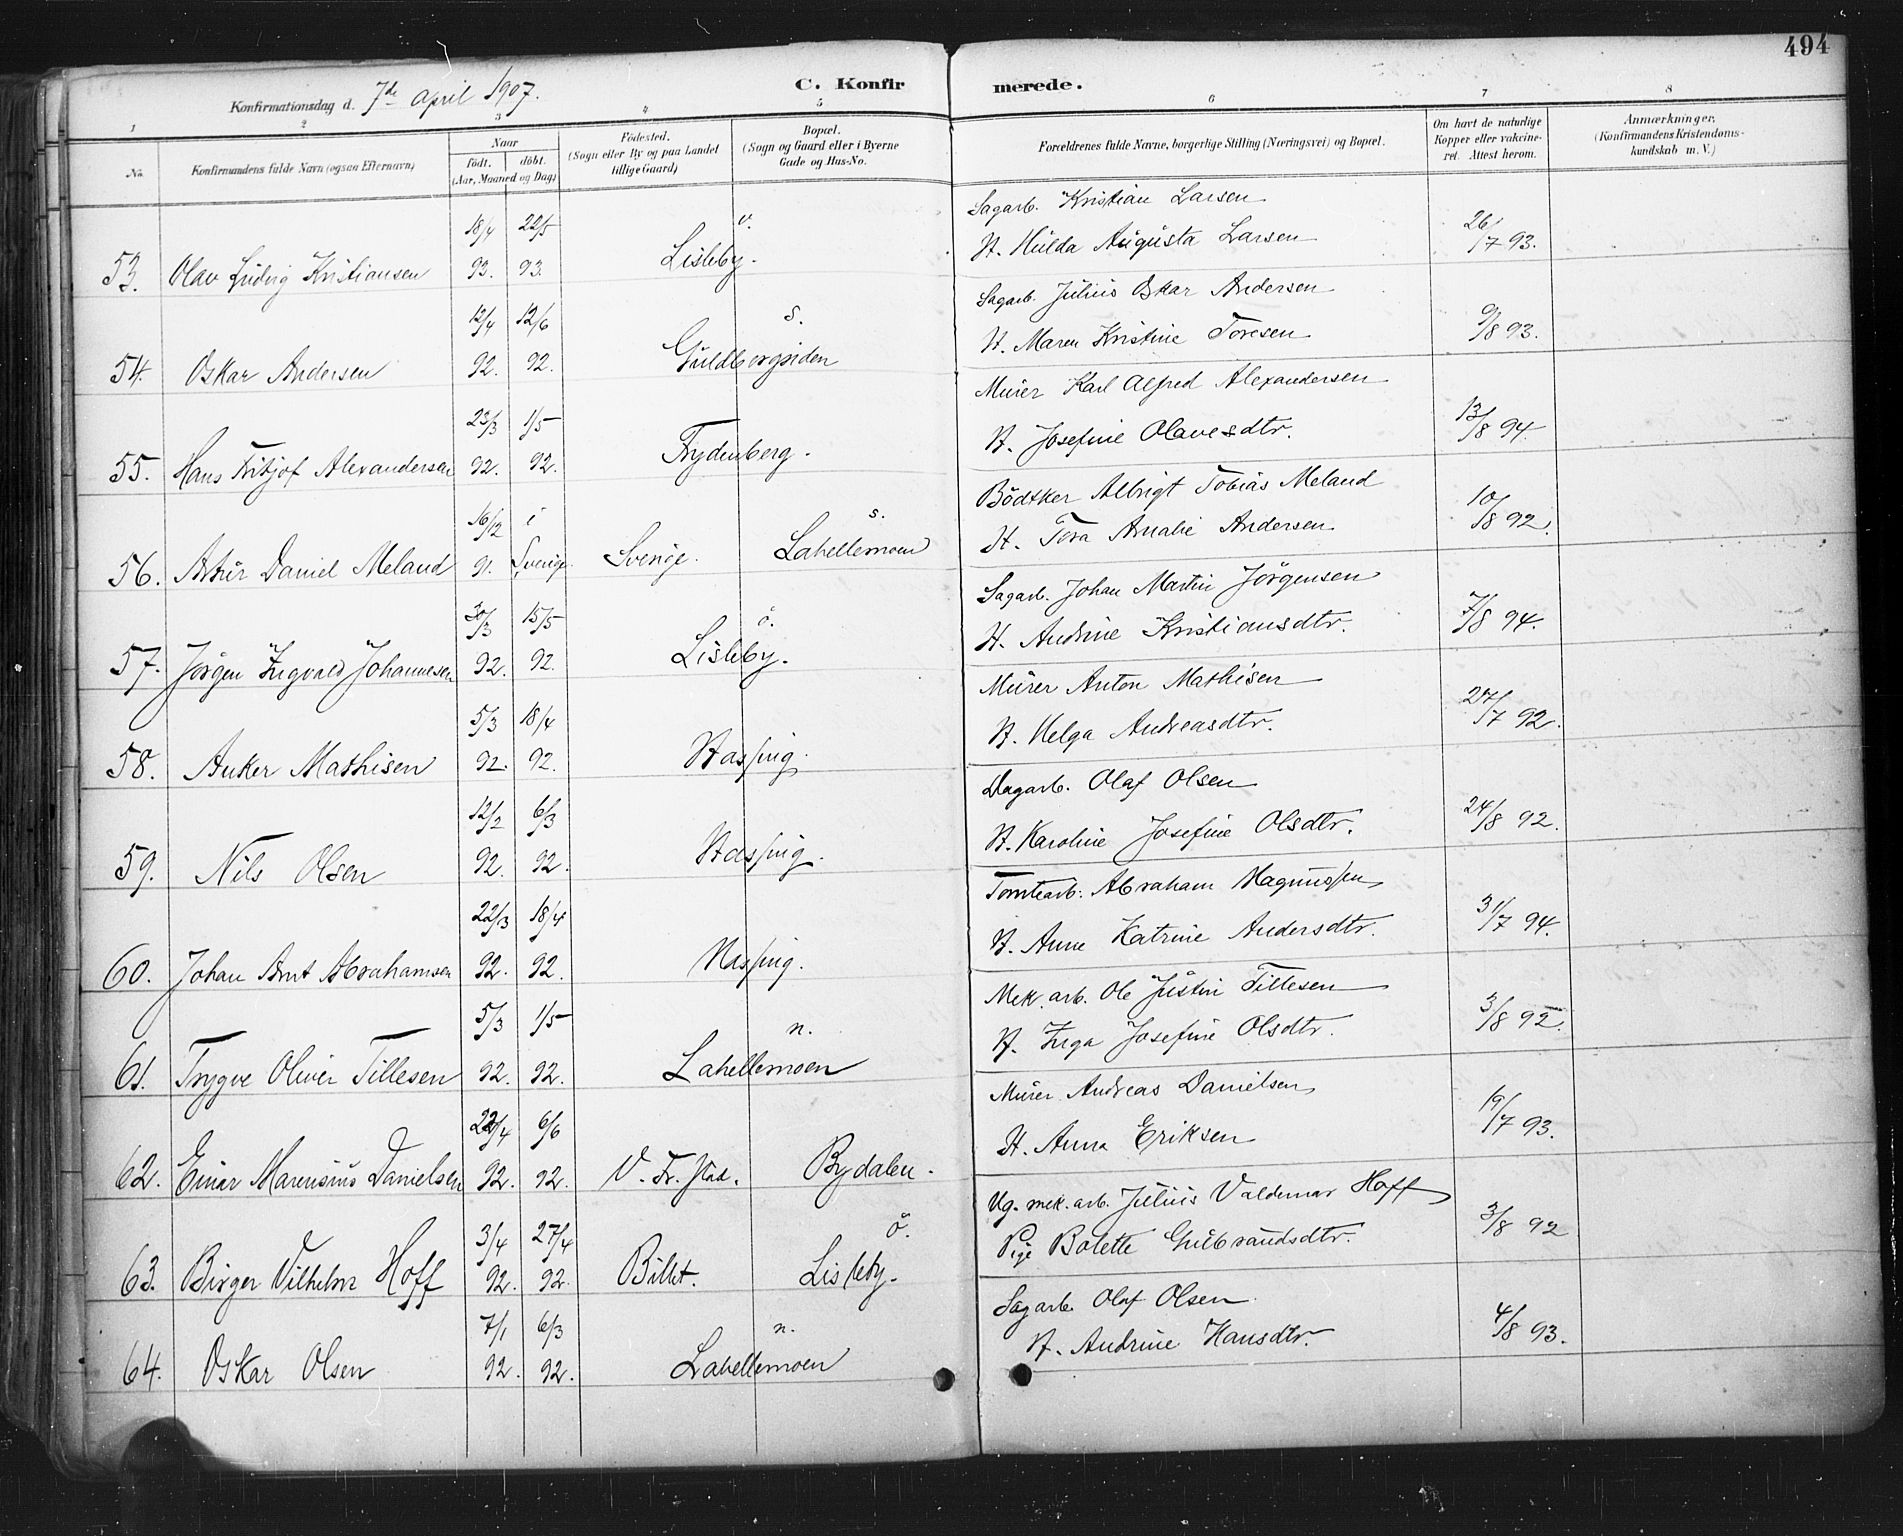 494
Konfirmationsdag d. 7de april 1907.
C. Konfirmerede.
1 2 3 4 5 6 7 8
No.
Konfirmandens fulde Navn (ogsaa Efternavn)
Naar
født. døbt.
(Aar, Maaned og Dag)
Fødested.
(Sogn eller By og paa Landet
tillige Gaard)
Bopæl.
(Sogn og Gaard eller i Byerne
Gade og Hus-No.
Forældrenes fulde Navne, borgerlige Stilling (Næringsvei) og Bopæl.
Om havt de naturlige
Kopper eller vakcine-
ret. Attest herom.
Anmærkninger.
(Konfirmandens Kristendoms-
kundskab m. V.)
18/4 22/5 v. Sagarb. Kristian Larsen 26/7 93.
53. Olav Ludvig Kristiansen 93. 93. Lisleby. H. Hulda Augusta Larsen
12/4 12/6 s. Sagarb. Julius Oskar Andersen 9/8 93.
54. Oskar Andersen 92. 92. Guldbergsiden H. Maren Kristine Toresen
23/3 1/5 Murer Karl Alfred Alexandersen 13/8 94.
55. Hans Fritjof Alexandersen 92. 92. Frydenberg. H. Josefine Olavesdtr.
16/12 i s. Bödtker Albrigt Tobias Meland 10/8 92.
56. Artur Daniel Meland 91. Sverige. Sverige. Lahellemoen H. Tora Amalie Andersen
30/3 15/5 ö. Sagarb. Johan Martin Jörgensen 7/8 94.
57. Jörgen Ingvald Johannesen 92. 92. Lisleby. H. Andrine Kristiansdtr.
5/3 18/4 Murer Anton Mathisen 27/7 92.
58. Anker Mathisen 92. 92. Hassing. H. Helga Andreasdtr.
12/2 6/3 Dagarb. Olaf Olsen 24/8 92.
59. Nils Olsen 92. 92. Hassing. H. Karoline Josefine Olsdtr.
22/3 18/4 Tomtearb. Abraham Magnussen 31/7 94.
60. Johan Arnt Abrahamsen 92. 92. Hassing. H. Anne Katrine Andersdtr.
5/3 1/5 n. Mek. arb. Ole Justin Tillesen 3/8 92.
61. Trygve Oliver Tillesen 92. 92. Lahellemoen H. Inga Josefine Olsdtr.
6/6 Murer Andreas Danielsen 19/7 93.
62. Einar Marensius Danielsen 92. 92. V. Fr.stad. Bydalen. H. Anna Eriksen
3/4 27/4 ö. Ug. mek. arb. Julius Valdemar Hoff 3/8 92
63. Birger Vilhelm Hoff 92. 92. Lisleby. Pige Bolette Gulbrandsdtr.
7/1 6/3 n. Sagarb. Olaf Olsen 4/8 93.
64. Oskar Olsen 92. 92. Lahellemoen H. Andrine Hansdtr.